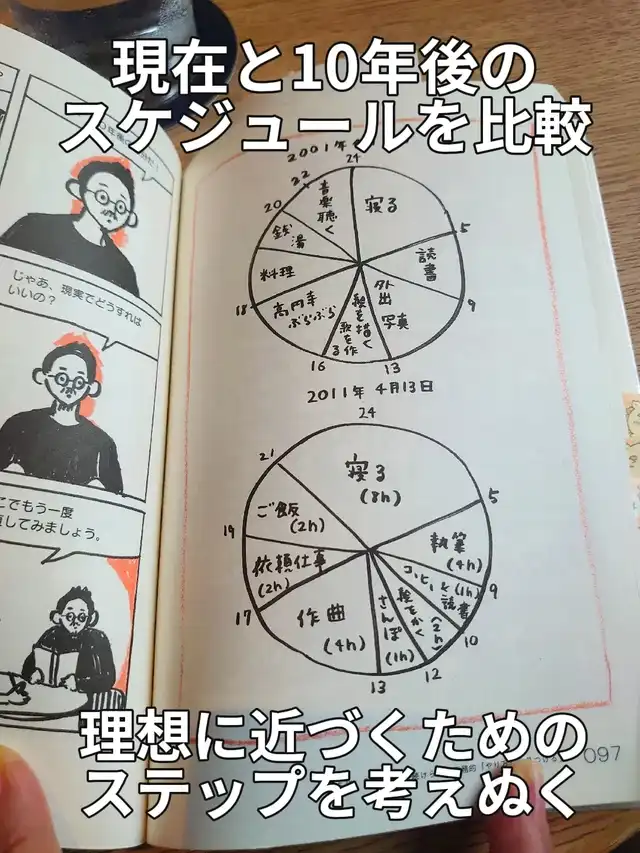 現在と10年後の
スケジュールを比較
じゃあ、現実でどうすれば
いいの?
もう一度
してみましょう。
2001年
24
寝る
5
読書
9
外出
写真
13
絵を描く
歌を作る
16
高円寺
ぶらぶら
18
料理
20
銭湯
22
音楽聴く
2011年 4月13日
24
寝る
(8h)
5
執筆
(4h)
9
コーヒーと読書
(1h)
10
絵をかく
(2h)
12
さんぽ
(1h)
13
作曲
(4h)
17
依頼仕事
(2h)
19
ご飯
(2h)
21
理想に近づくための
ステップを考えぬく
097